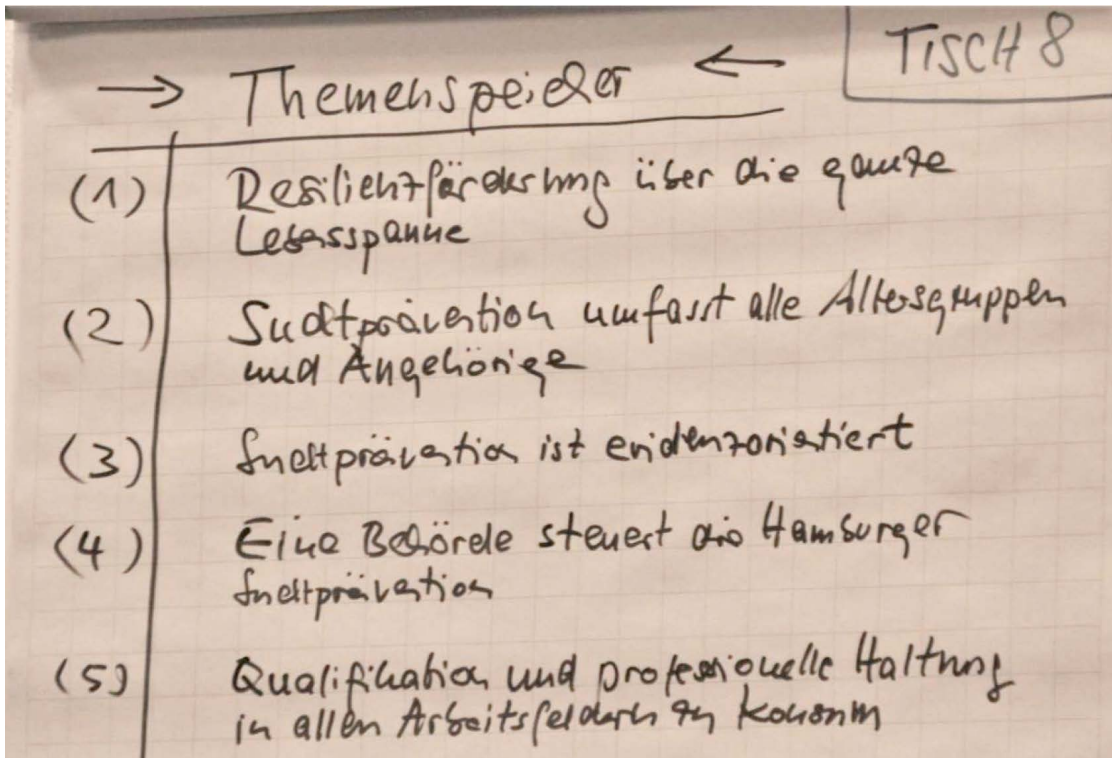 TISCH 8
→ Themenspeicher ←
(1) Resilienzförderung über die ganze
Lebensspanne
(2) Suchtprävention umfasst alle Altersgruppen
und Angehörige
(3) Suchtprävention ist evidenzorientiert
(4) Eine Behörde steuert die Hamburger
Suchtprävention
(5) Qualifikation und professionelle Haltung
in allen Arbeitsfeldern zu